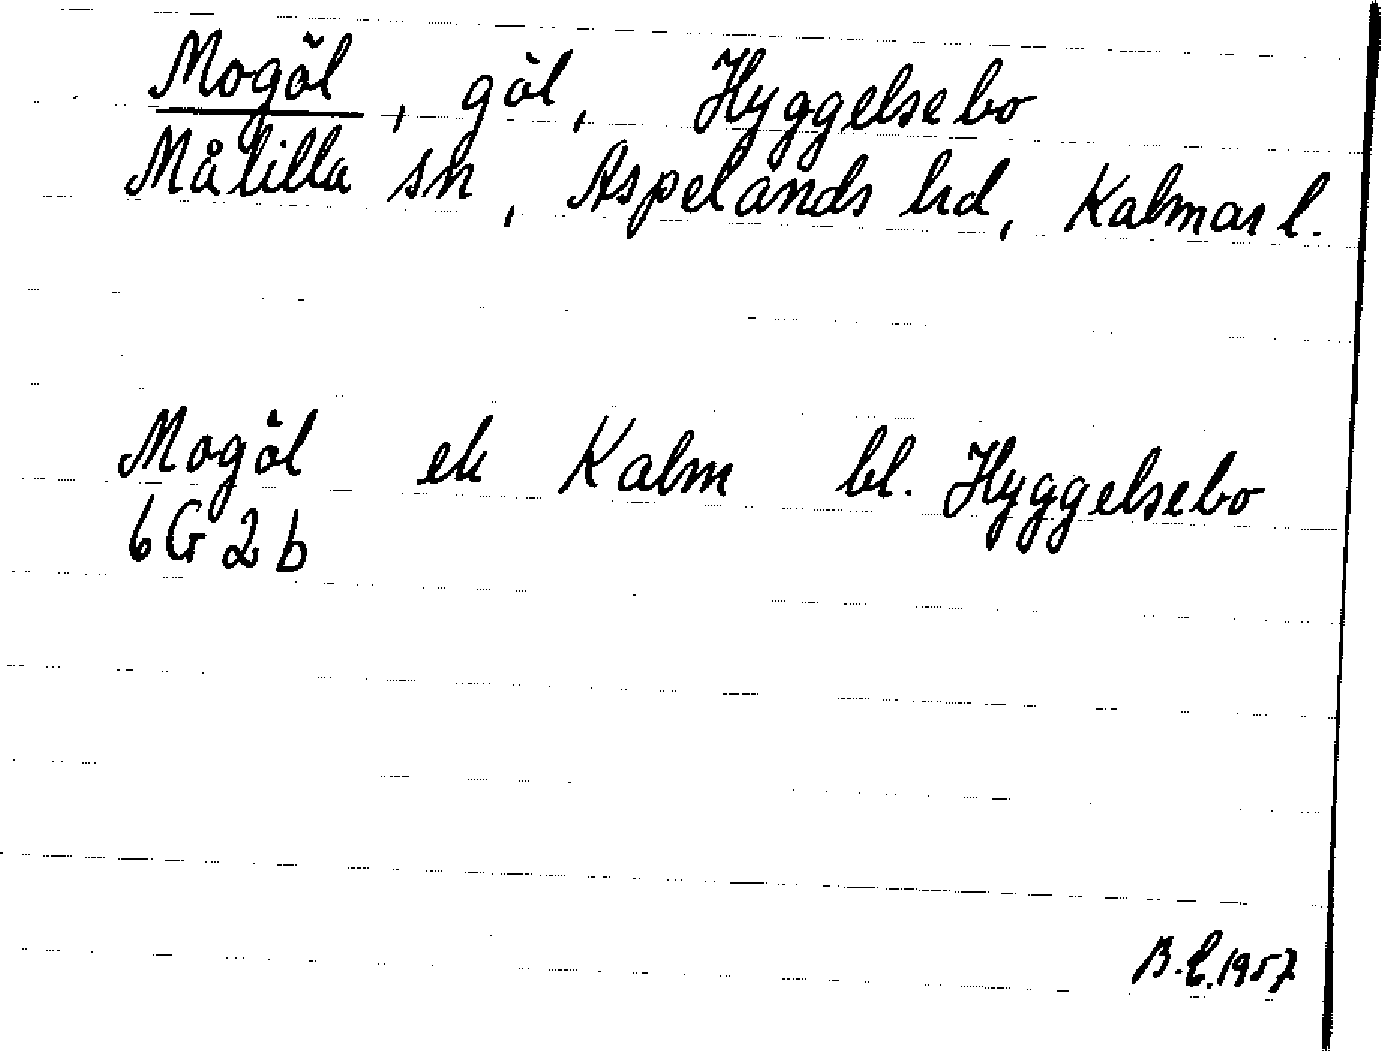 Mogöl, göl, Hyggelsebo
Målilla sn, Aspelands hd, Kalmar l.
Mogöl ek Kalm bl. Hyggelsebo
6G2b
B.E.1957